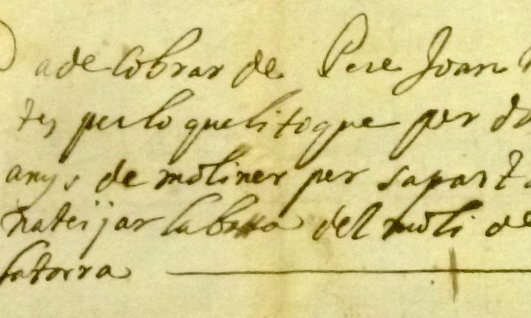 a de Cobrar de Pere Joan
tes per lo que li toque per d
anys de moliner per sa part
nateijar la bassa del moli de
la torra